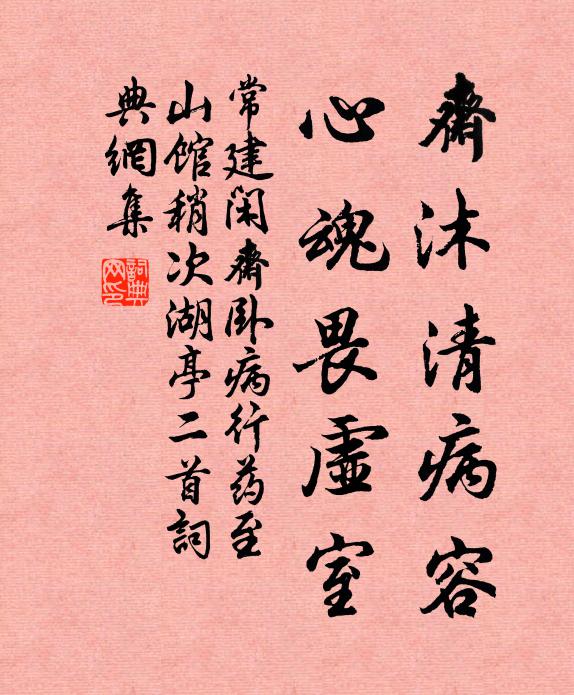 齋沐清病容
心魂畏虛室
常建閑齋卧病行药至
山館稍次湖亭二首詞
典網集
詞典网印